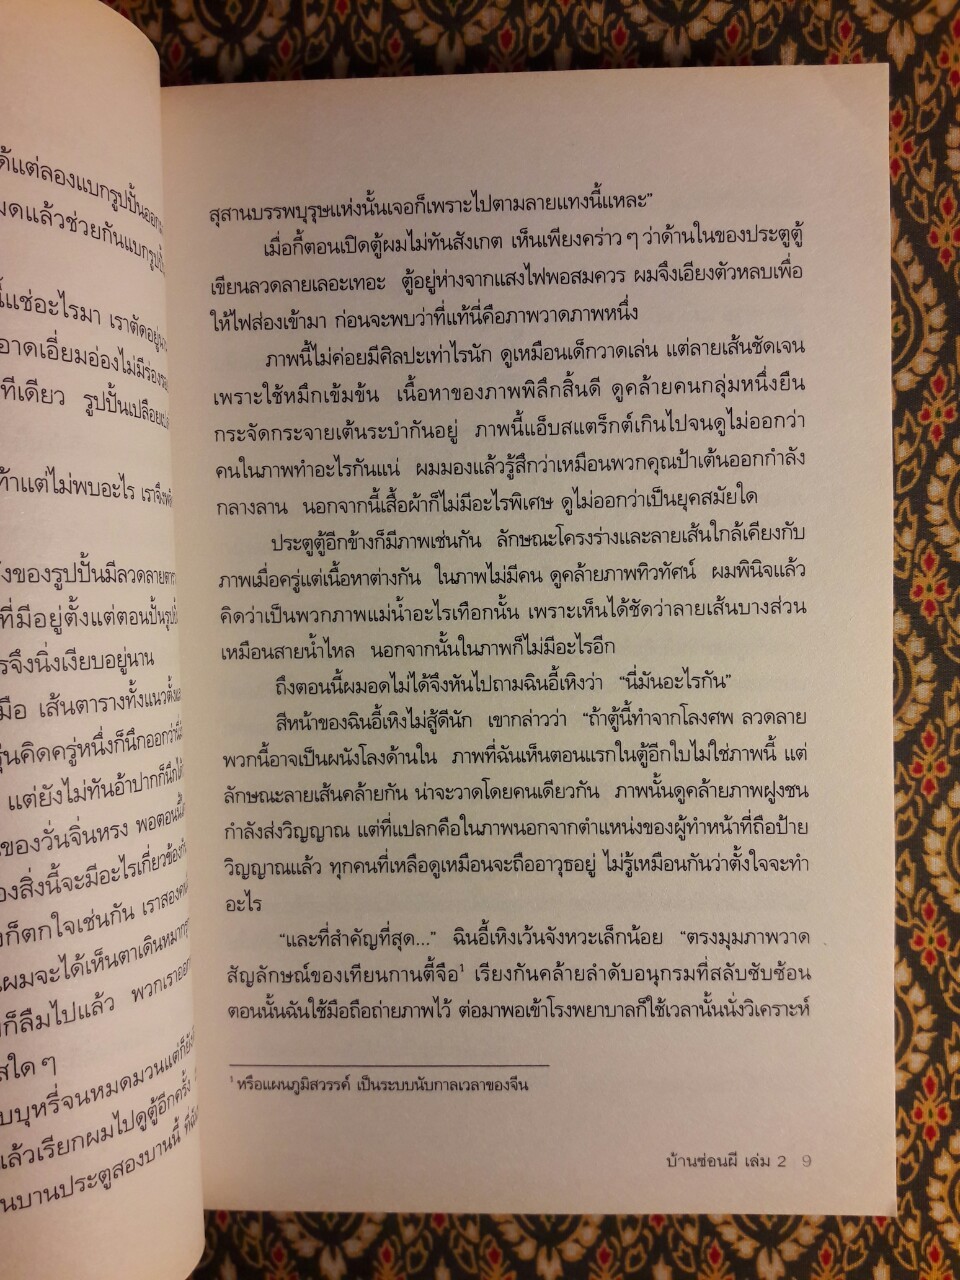 ด้แต่ลองแบกรูปปั้นออก
มดแล้วช่วยกันแบกรูป
นี้แช่อะไรมา เราตัดอยู่
อาดเอี่ยมอ่องไม่มีร่อง
ทีเดียว รูปปั้นเปลือย
ท้าแต่ไม่พบอะไร เราจึง
ังของรูปปั้นมีลวดลาย
ที่มีอยู่ตั้งแต่ตอนปั้นรูป
รจึงนิ่งเงียบอยู่นาน
มือ เส้นตารางทั้งแนวตั้ง
ุ่นคิดครู่หนึ่งก็นึกออกว่า
แต่ยังไม่ทันอ้าปากก็นึกได้
นของวั่นจิ่นหรง พอตอนนี้
องสิ่งนี้จะมีอะไรเกี่ยวข้อง
งก็ตกใจเช่นกัน เราสองคน
นผมจะได้เห็นตาเดินหมาก
ก็ลืมไปแล้ว พวกเรา
สใด ๆ
บบุหรี่จนหมดมวนแต่ก็ยัง
แล้วเรียกผมไปดูตู้อีกครั้ง
นบานประตูสองบานนี้
สุสานบรรพบุรุษแห่งนั้นเจอก็เพราะไปตามลายแทงนี้แหละ”
เมื่อกี้ตอนเปิดตู้ผมไม่ทันสังเกต เห็นเพียงคร่าว ๆ ว่าด้านในของประตูตู้
เขียนลวดลายเลอะเทอะ ตู้อยู่ห่างจากแสงไฟพอสมควร ผมจึงเอียงตัวหลบเพื่อ
ให้ไฟส่องเข้ามา ก่อนจะพบว่าที่แท้นี่คือภาพวาดภาพหนึ่ง
ภาพนี้ไม่ค่อยมีศิลปะเท่าไรนัก ดูเหมือนเด็กวาดเล่น แต่ลายเส้นชัดเจน
เพราะใช้หมึกเข้มข้น เนื้อหาของภาพพิลึกสิ้นดี ดูคล้ายคนกลุ่มหนึ่งยืน
กระจัดกระจายเต้นระบำกันอยู่ ภาพนี้แอ็บสแตร็กต์เกินไปจนดูไม่ออกว่า
คนในภาพทำอะไรกันแน่ ผมมองแล้วรู้สึกว่าเหมือนพวกคุณป้าเต้นออกกำลัง
กลางลาน นอกจากนี้เสื้อผ้าก็ไม่มีอะไรพิเศษ ดูไม่ออกว่าเป็นยุคสมัยใด
ประตูตู้อีกข้างก็มีภาพเช่นกัน ลักษณะโครงร่างและลายเส้นใกล้เคียงกับ
ภาพเมื่อครู่แต่เนื้อหาต่างกัน ในภาพไม่มีคน ดูคล้ายภาพทิวทัศน์ ผมพินิจแล้ว
คิดว่าเป็นพวกภาพแม่น้ำอะไรเทือกนั้น เพราะเห็นได้ชัดว่าลายเส้นบางส่วน
เหมือนสายน้ำไหล นอกจากนั้นในภาพก็ไม่มีอะไรอีก
ถึงตอนนี้ผมอดไม่ได้จึงหันไปถามฉินอี้เหิงว่า “นี่มันอะไรกัน”
สีหน้าของฉินอี้เหิงไม่สู้ดีนัก เขากล่าวว่า “ถ้าตู้นี้ทำจากโลงศพ ลวดลาย
พวกนี้อาจเป็นผนังโลงด้านใน ภาพที่ฉันเห็นตอนแรกในตู้อีกใบไม่ใช่ภาพนี้ แต่
ลักษณะลายเส้นคล้ายกัน น่าจะวาดโดยคนเดียวกัน ภาพนั้นดูคล้ายภาพฝูงชน
กำลังส่งวิญญาณ แต่ที่แปลกคือในภาพนอกจากตำแหน่งของผู้ทำหน้าที่ถือป้าย
วิญญาณแล้ว ทุกคนที่เหลือดูเหมือนจะถืออาวุธอยู่ ไม่รู้เหมือนกันว่าตั้งใจจะทำ
อะไร
“และที่สำคัญที่สุด...” ฉินอี้เหิงเว้นจังหวะเล็กน้อย “ตรงมุมภาพวาด
สัญลักษณ์ของเทียนกานตี้จือ¹ เรียงกันคล้ายลำดับอนุกรมที่สลับซับซ้อน
ตอนนั้นฉันใช้มือถือถ่ายภาพไว้ ต่อมาพอเข้าโรงพยาบาลก็ใช้เวลานั้นนั่งวิเคราะห์
¹ หรือแผนภูมิสวรรค์ เป็นระบบนับกาลเวลาของจีน
บ้านซ่อนผี เล่ม 2 9